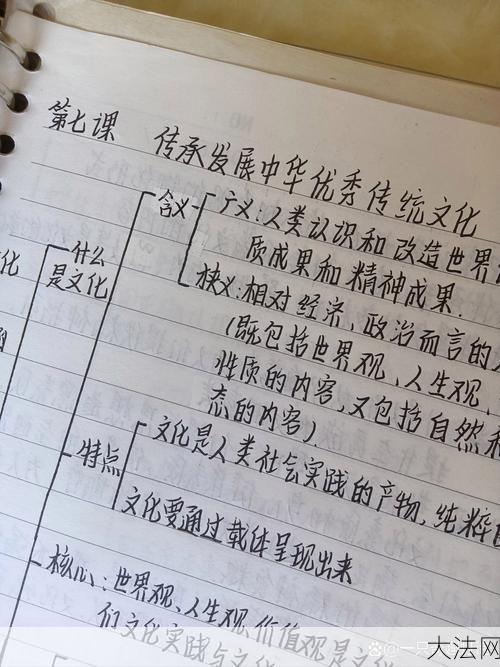 第七课 传承发展中华优秀传统文化
含义
广义:人类认识和改造世界
质成果和精神成果.
化
什么
是文化
狭义:相对经济、政治而言的
(既包括世界观、人生观、
性质的内容,又包括自然和
态的内容)
特点
文化是人类社会实践的产物,纯粹
文化要通过载体呈现出来
核心:世界观、人生观、价值观是文
们文化实践与文化
大法网